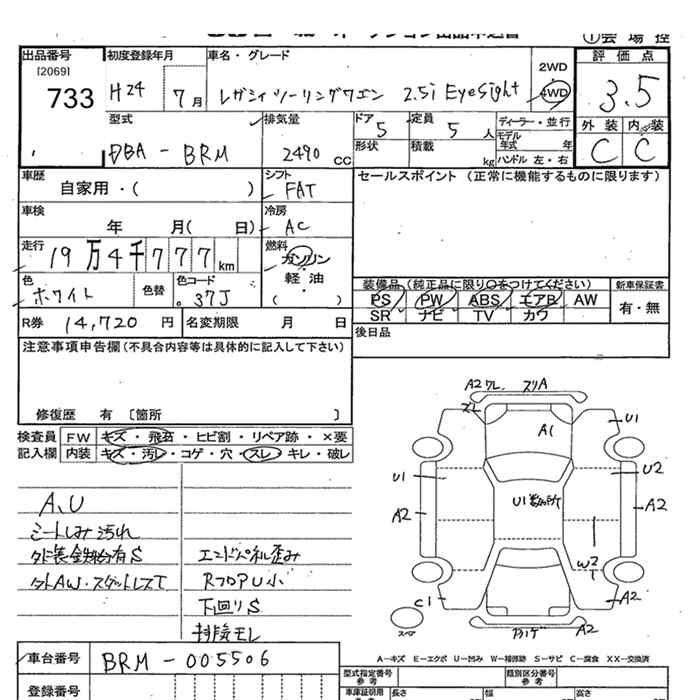 ①会場控
出品番号 初度登録年月 車名・グレード 評価点
[2069]
733 H24 7月 レガシィツーリングワゴン 2.5i EyeSight 2WD 4WD 3.5
型式 排気量 ドア 定員 ディーラー・並行 外装 内装
DBA - BRM 2490 CC 5 5人 モデル年式 年 C C
形状 積載 kg ハンドル 左・右
車歴 シフト セールスポイント (正常に機能するものに限ります)
自家用・( ) FAT
車検 冷房
年 月( 日) AC
走行 燃料
19万4千777km ガソリン・
色 色替 色コード 軽・油
ホワイト 37J ( )
装備品 (純正品に限り○をつけてください) 新車保証書
PS PW ABS エアB AW 有・無
SR ナビ TV カワ
R券 14,720円 名変期限 月 日
後日品
注意事項申告欄(不具合内容等は具体的に記入して下さい)
修復歴 有 〔箇所 〕
検査員 FW キズ・飛石・ヒビ割・リペア跡・×要
記入欄 内装 キズ・汚レ・コゲ・穴・スレ・キレ・破レ
A2 ワレ スリA
ズレ
A1
U1
U1
U2
A2
U1数ヵ所
A2
W2
C1
A2
スペア
A2
A、U
シートしみ汚れ
外装鉄粉有S
エンドパネル歪み
RフロアU小
下回りS
排気モレ
A-キズ E-エクボ U-凹み W-補修跡 S-サビ C-腐食 XX-交換済
車台番号 BRM - 005506
登録番号
型式指定番号 参考 類別区分番号 参考
車庫証明用 参考 長さ 幅 高さ